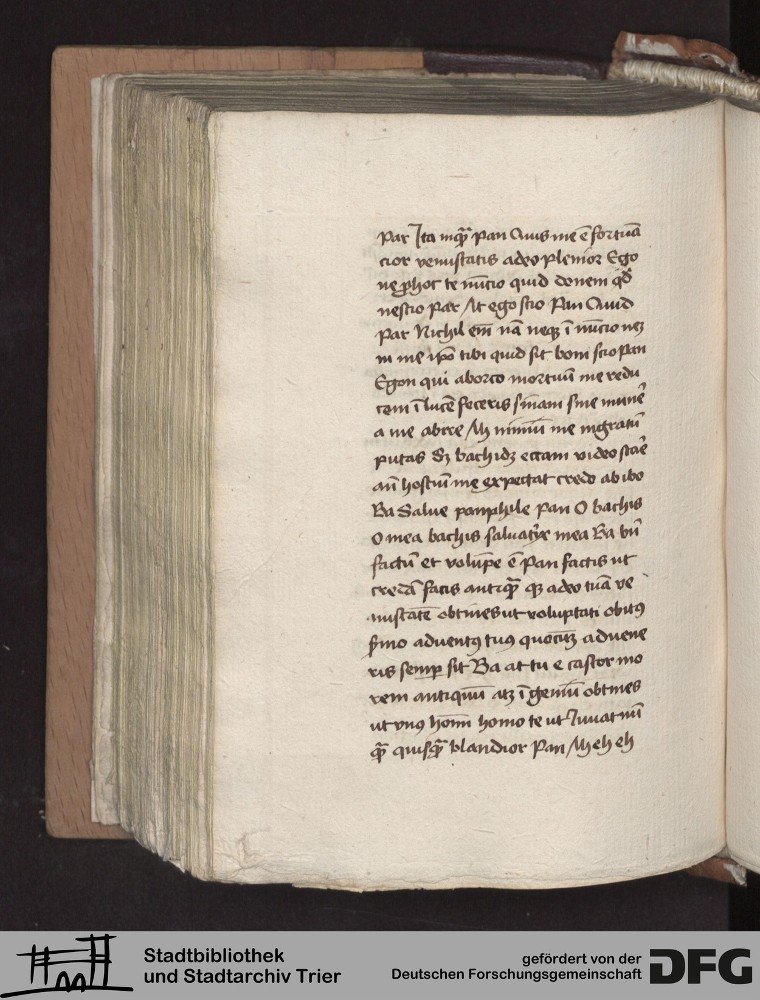 Par Ita inqȝ Pan Quis me ē fortuā
cior venustatis adeo plenior Ego
ne ꝓ hoc te nūcio quid donem qd̄
nescio Par At ego scio Pan Quid
Par Nichil em̄ nā neqȝ ī nūcio neqȝ
in me ip̄o tibi quid sit boni scio Pan
Egon qui ab orco mortuū me redu
cem ī lucē feceris sinam sine munē
a me abire Ah nimiū me ingratū
putas Sȝ bachidȝ eccam video stāē
an̄ hostiū me expectat credo ab ibo
Ba Salue pamphile Pan O bachis
O mea bachis saluatrix mea Ba bn̄
factū et volupe ē Pan factis ut
credā facis antiqȝ qȝ adeo tuā ve
nustatē obtines ut voluptati obitꝰ
s̄mo aduentꝰ tuꝰ quocūqȝ aduene
ris semper sit Ba at tu e castor mo
rem antiquū atqȝ īgeniū obtines
ut vnꝰ homī homo te ut Iuuat nū
qȝ quisqȝ blandior Pan Ah eh eh
Stadtbibliothek
und Stadtarchiv Trier
gefördert von der
Deutschen Forschungsgemeinschaft
DFG